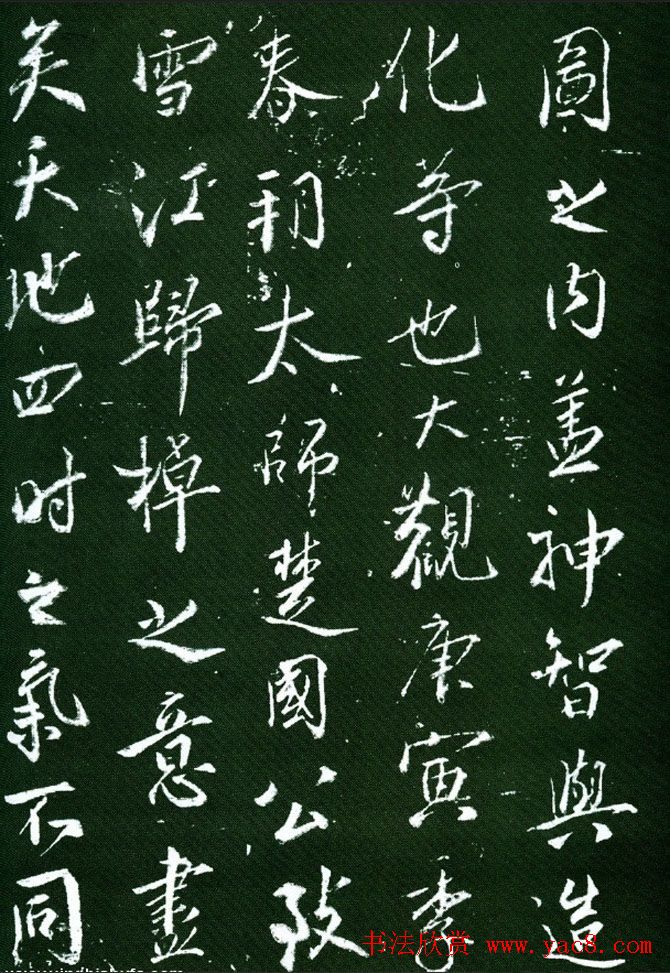 圖之内盖神智與造
化等也大觀庚寅季
春朔太師楚國公致
雪江歸棹之意盡
矣天地四时之氣不同
书法欣赏 www.yac8.com